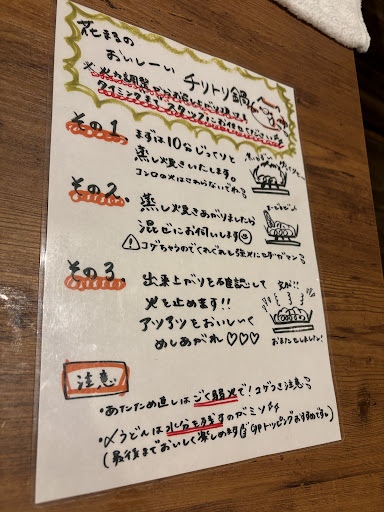 花まるの
おいしーい チリトリ鍋
※火力調整やお召し上がり頂ける
タイミングまで、スタッフにお任せください
その1.
まずは10分じっくりと
蒸し焼きいたします。
コンロの火はさわらないでね?
その2.
蒸し焼きあがりましたら
混ぜにお伺いします
コゲちゃうのでくれぐれも強火にせずガマン
その3.
出来上がりを確認して
火を止めます!!
アツアツをおいしく
めしあがれ♡♡♡
おまたせしました!
注意
・あたため直しはごく弱火で!コゲつき注意
・〆うどんは水分を残すのがミソ
(最後までおいしく楽しめます トッピングおすすめです。)